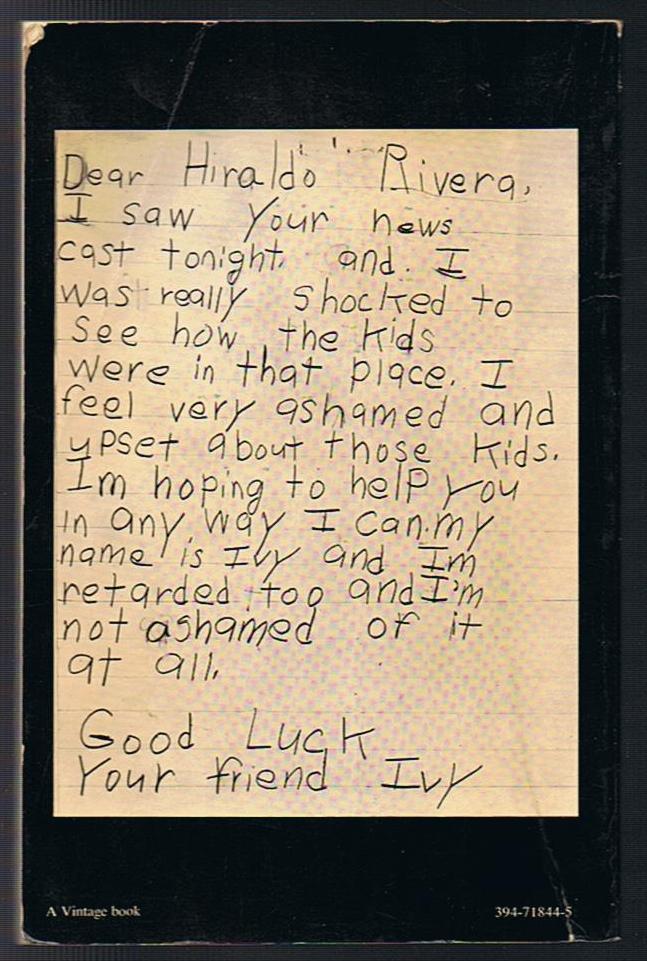 Dear Hiraldo Rivera,
I saw Your news
cast tonight. and. I
was really shocked to
see how the kids
were in that place. I
feel very ashamed and
upset about those kids.
Im hoping to help you
in any way I can.my
name is Ivy and Im
retarded too and I'm
not ashamed of it
at all.
Good Luck
Your friend Ivy
A Vintage book
394-71844-5